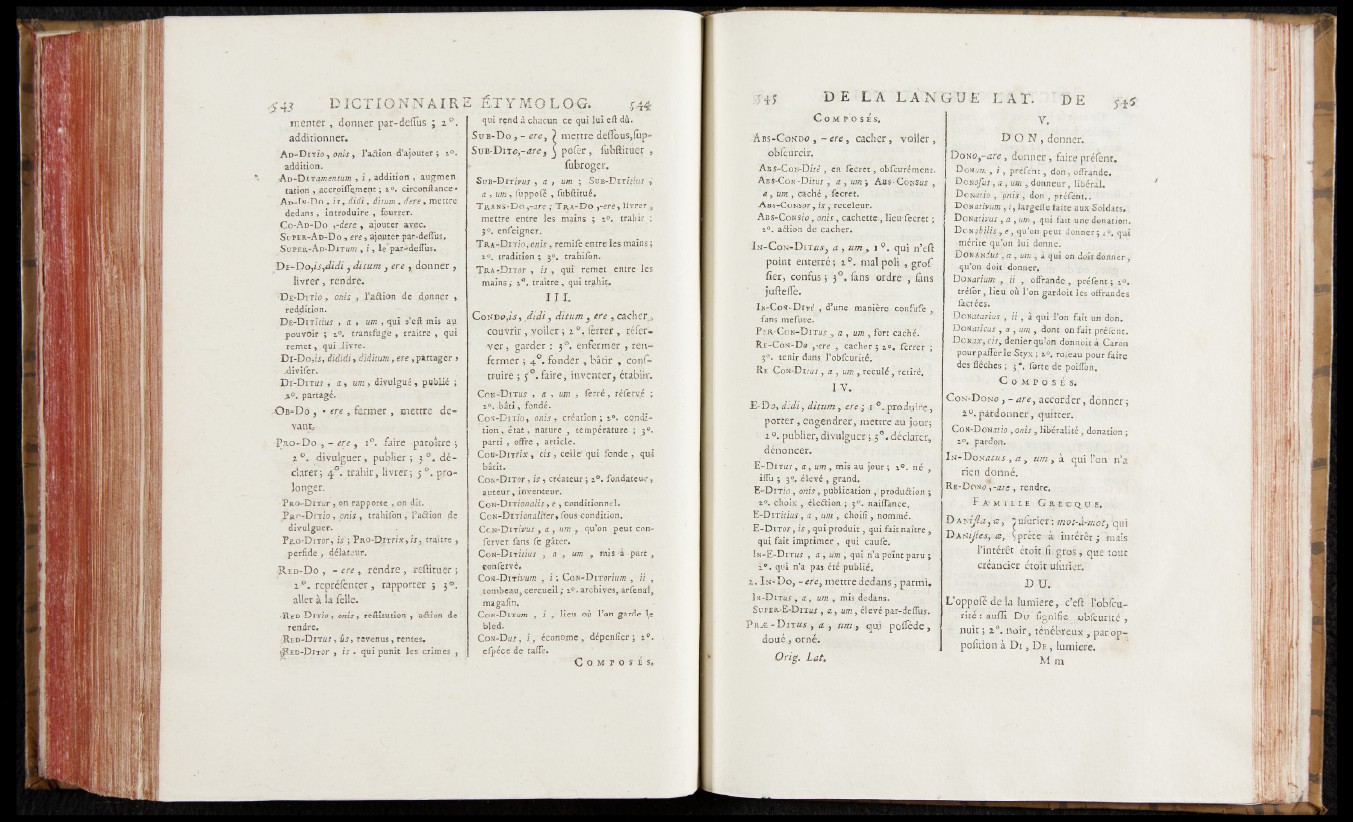 543 DICTIONNAIRE ÉTYMOLOG. 544
menter, donner par-deſſus ; 2°.
additionner.
AD-DITIo, onis, l'action d'ajouter ; 2°.
addition.
AD-DITamentum, i, addition, augmen
tation, accroiſſement ; 2°. circonſtance.
AD-IN-DO, is, didi, ditum, dere, mettre
dedans, introduire, fourrer.
CO-AD-DO,-dere, ajouter avec.
SUPER-AD-DO, ere, ajouter par-deſſus.
SUPER-AD-DITUM, i, le par-deſſus.
DE-DO,is,didi, ditum, ere, donner,
livrer, rendre.
DE-DITIo, onis, l'action de donner,
reddition.
DE-DITitius, a, um, qui s'eſt mis au
pouvoir ; 2°. transfuge, traitre, qui
remet, qui livre.
DI-DO,is, dididi, diditum, ere, partager,
diviſer.
DI-DITus, a, um, divulgué, publié ;
2°. partagé.
OB-DO, - ere, fermer, mettre de-
vant.
PRO-DO, - ere, 1°. faire paroître ;
2°. divulguer, publier ; 3°. dé-
clarer ; 4°. trahir, livrer ; 5°. pro-
longer.
PRO-DITur, on rapporte, on dit.
PRO-DITIo, onis, trahiſon, l'action de
divulguer.
PRO-DITor, is ; PRO-DITrix, is, traitre,
perfide, délateur.
RED-DO, - ere, rendre, reſtituer ;
2°. repréſenter, rapporter ; 3°.
aller à la ſelle.
RED-DITio, onis, reſtitution, action de
rendre.
RED-DITus, ûs, revenus, rentes.
RED-DITor, is. qui punit les crimes,
qui rend à chacun ce qui lui eſt dû.
SUB-DO, - ere, } mettre deſſous, ſup-
SUB-DITO,-are, } poſer, ſubſtituer,
ſubroger.
SUB-DITivus, a, um ; SUB-DITitius,
a, um, ſuppoſé, ſubſtitué.
TRANS-DO,-are ; TRA-DO,-ere, livrer,
mettre entre les mains ; 2°. trahir ;
3°. enſeigner.
TRA-DITio, onis, remiſe entre les mains ;
2°. tradition ; 3°. trahiſon.
TRA-DITor, is, qui remet entre les
mains ; 2°. traître, qui trahit.
III.
CONDO,is, didi, ditum, ere, cacher,
couvrir, voiler ; 2°. ſerrer, réſer-
ver, garder : 3°. enfermer, ren-
fermer ; 4°. fonder, bâtir, conſ-
truire ; 5°. faire, inventer, établir.
CON-DITUS, a, um, ſerré, réſervé ;
2°. bâti, fondé.
CON-DITIo, onis, création ; 2°. condi-
tion, état, nature, température ; 3°.
parti, offre, article.
CON-DITrix, cis, celle qui fonde, qui
bâtit.
CON-DITor, is, créateur ; 2°. fondateur,
auteur, inventeur.
CON-DITionalis, e, conditionnel.
CON-DITionaliter, ſous condition.
CON-DITivus, a, um, qu'on peut con-
ſerver ſans ſe gâter.
CON-DITitius, a, um, mis à part,
conſervé.
CON-DITivum, i ; CON-DITorium, ii,
tombeau, cercueil ; 2°. archives, arſenal,
magaſin.
CON-DITum, i, lieu où l'on garde le
bled.
CON-DUS, i, économe, dépenſier ; 2°.
eſpéce de taſſe.
COMPOSÉS.
545 DE LA LANGUE LAT. DE 546
COMPOSÉS.
ABS-CONDO, - ere, cacher, voiler,
obſcurcir.
ABS-CON-DITÈ, en ſecret, obſcurément.
ABS-CON-DITUS, a, um ; ABS-CONSUS,
a, um, caché, ſecret.
ABS-CONSOR, is, receleur.
ABS-CONSIO, onis, cachette, lieu ſecret ;
2°. action de cacher.
IN-CON-DITUS, a, um, 1°. qui n'eſt
point enterré ; 2°. mal poli, groſ
ſier, confus ; 3°. ſans ordre, ſans
juſteſſe.
IN-CON-DITÈ, d'une manière confuſe,
ſans meſure.
PER-CON-DITUS, a, um, fort caché.
RE-CON-DO,-ere, cacher ; 2°. ſerrer ;
3°. tenir dans l'obſcurité.
RE CON-DITUS, a, um, reculé, retiré.
IV.
E-DO, didi, ditum, ere ; 1°. produire,
porter, engendrer, mettre au jour ;
2°. publier, divulguer ; 3°. déclarer,
dénoncer.
E-DITUS, a, um, mis au jour ; 2°. né,
iſſu ; 3°. élevé, grand.
E-DITIO, onis, publication, production ;
2°. choix, élection ; 3°. naiſſance.
E-DITitius, a, um, choiſi, nommé.
E-DITOR, is, qui produit, qui fait naître,
qui fait imprimer, qui cauſe.
IN-E-DITUS, a, um, qui n'a point paru ;
2°. qui n'a pas été publié.
2. IN-DO, - ere, mettre dedans, parmi.
IN-DITUS, a, um, mis dedans.
SUPER-E-DITUS, a, um, élevé par-deſſus.
PRÆ-DITUS, a, um, qui poſſède,
doué, orné.
Orig. Lat.
V.
DON, donner.
DONO,-are, donner, faire préſent.
DONum, i, préſent, don, offrande.
DONoſus, a, um, donneur, libéral.
DONatio, onis, don, préſent.
DONativum, i, largeſſe faite aux Soldats.
DONativus, a, um, qui fait une donation.
DONabilis, e, qu'on peut donner ; 2°. qui
mérite qu'on lui donne.
DONANdus, a, um, à qui on doit donner,
qu'on doit donner.
DONarium, ii, offrande, préſent ; 2°.
tréſor, lieu où l'on gardoit les offrandes
ſacrées.
DONatarius, ii, à qui l'on fait un don.
DONaticus, a, um, dont on fait préſent.
DONax, cis, denier qu'on donnoit à Caron
pour paſſer le Styx ; 2°. roſeau pour faire
des flêches ; 3°. ſorte de poiſſon.
COMPOSÉS.
CON-DONO, - are, accorder, donner ;
2°. pardonner, quitter.
CON-DONatio, onis, libéralité, donation ;
2°. pardon.
IN-DONatus, a, um, à qui l'on n'a
rien donné.
RE-DONO,-are, rendre.
FAMILLE GRECQUE.
DANiſta, æ, } uſurier : mot-à-mot, qui
DANiſtes, æ, } prête à intérêt ; mais
l'intérêt étoit ſi gros, que tout
créancier étoit uſurier.
DU.
L'oppoſé de la lumiere, c'eſt l'obſcu-
rité : auſſi DU ſignifie obſcurité,
nuit ; 2°. noir, ténébreux, par op-
poſition à DI, DE, lumiere.
M m